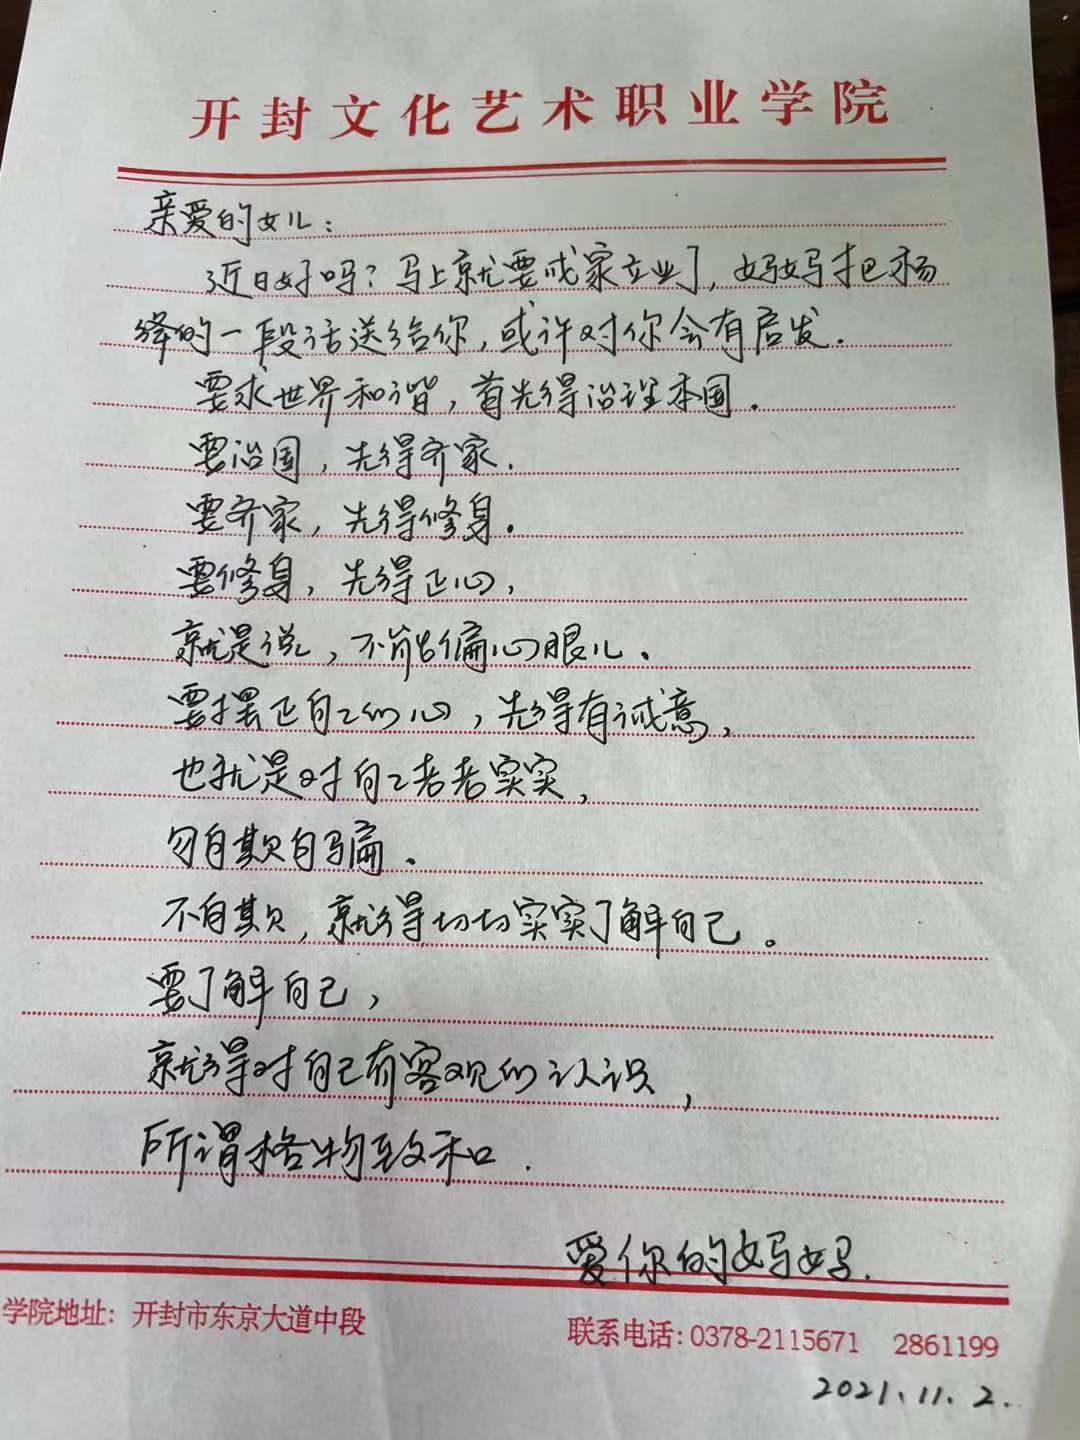 开封文化艺术职业学院
亲爱的女儿：
近日好吗？马上就要成家立业了，妈妈把杨
绛的一段话送给你，或许对你会有启发.
要求世界和谐，首先得治理本国.
要治国，先得齐家.
要齐家，先得修身.
要修身，先得正心，
就是说，不能偏心眼儿.
要摆正自己的心，先得有诚意，
也就是对自己老老实实，
勿自欺自骗.
不自欺，就得切切实实了解自己。
要了解自己，
就得对自己有客观的认识，
所谓格物致知.
爱你的妈妈.
学院地址：开封市东京大道中段
联系电话：0378-2115671 2861199
2021.11.2.